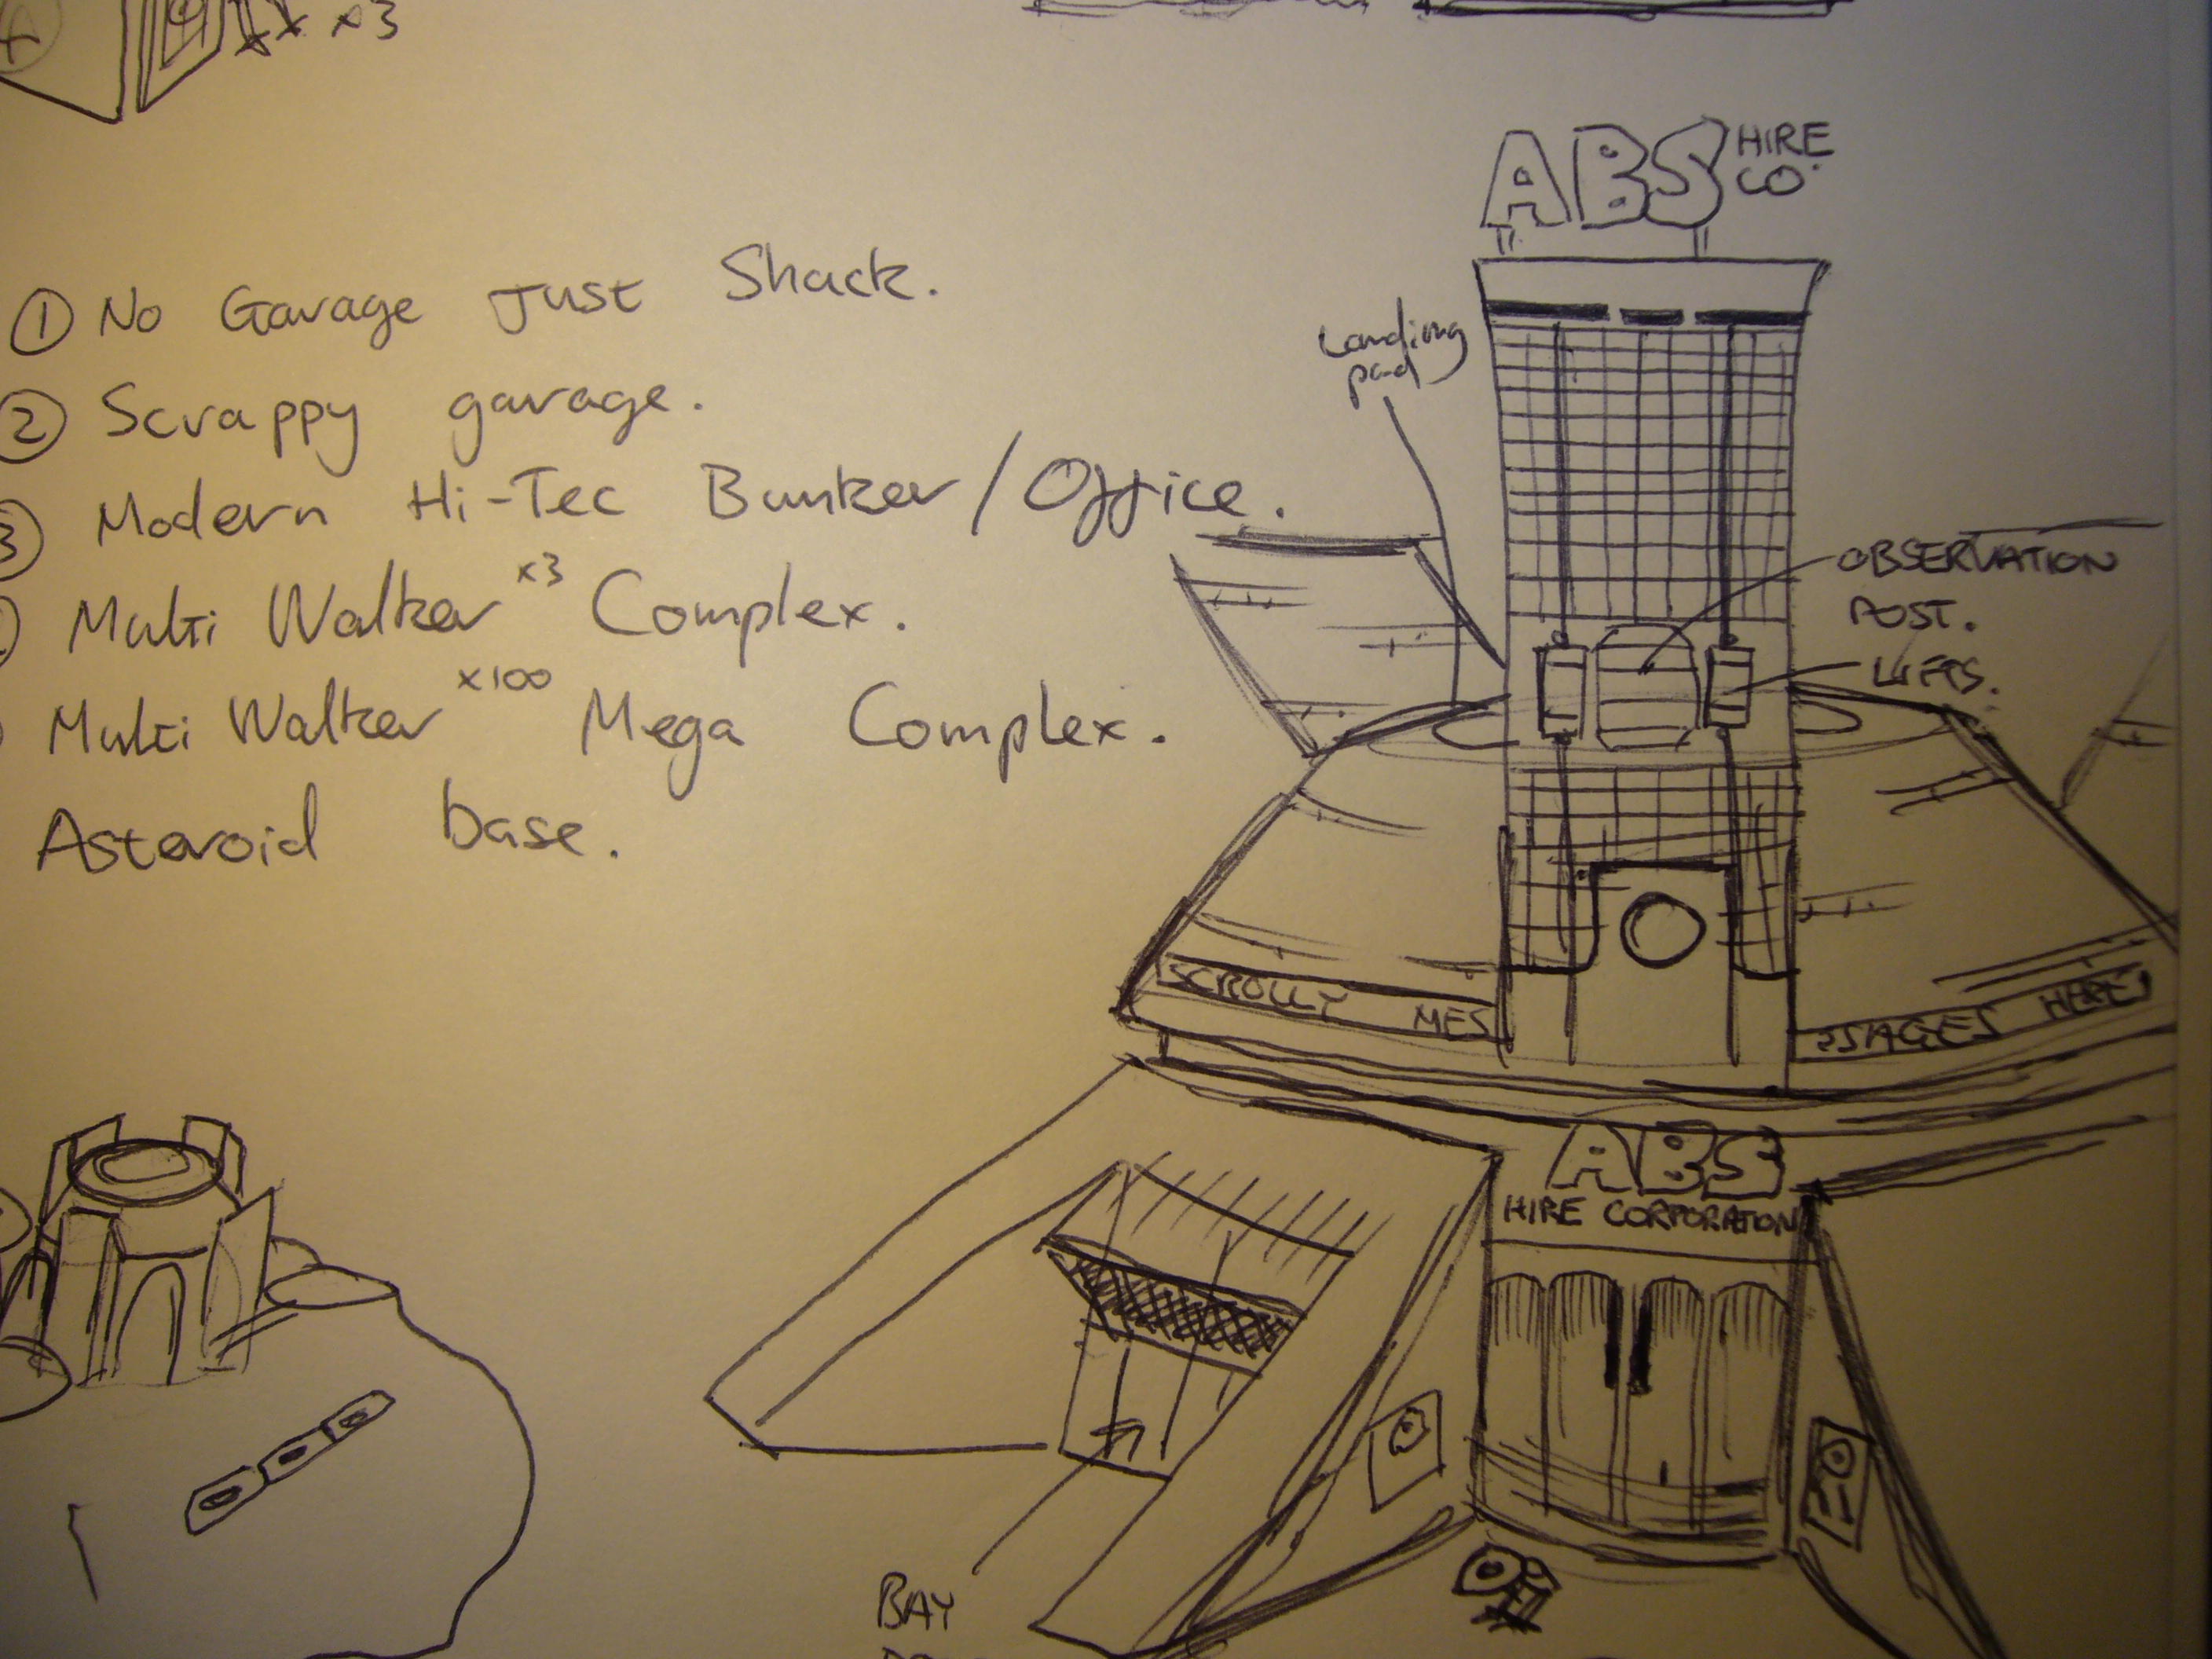 x3
① No Garage Just Shack.
② Scrappy garage.
③ Modern Hi-Tec Bunker/Office.
Multi Walker x3 Complex.
Multi Walker x100 Mega Complex.
Asteroid base.
ABS HIRE
CO.
Landing
pad
OBSERVATION
POST.
LIFTS.
SCROLLY MES
SSAGES HERE
ABS
HIRE CORPORATION
BAY